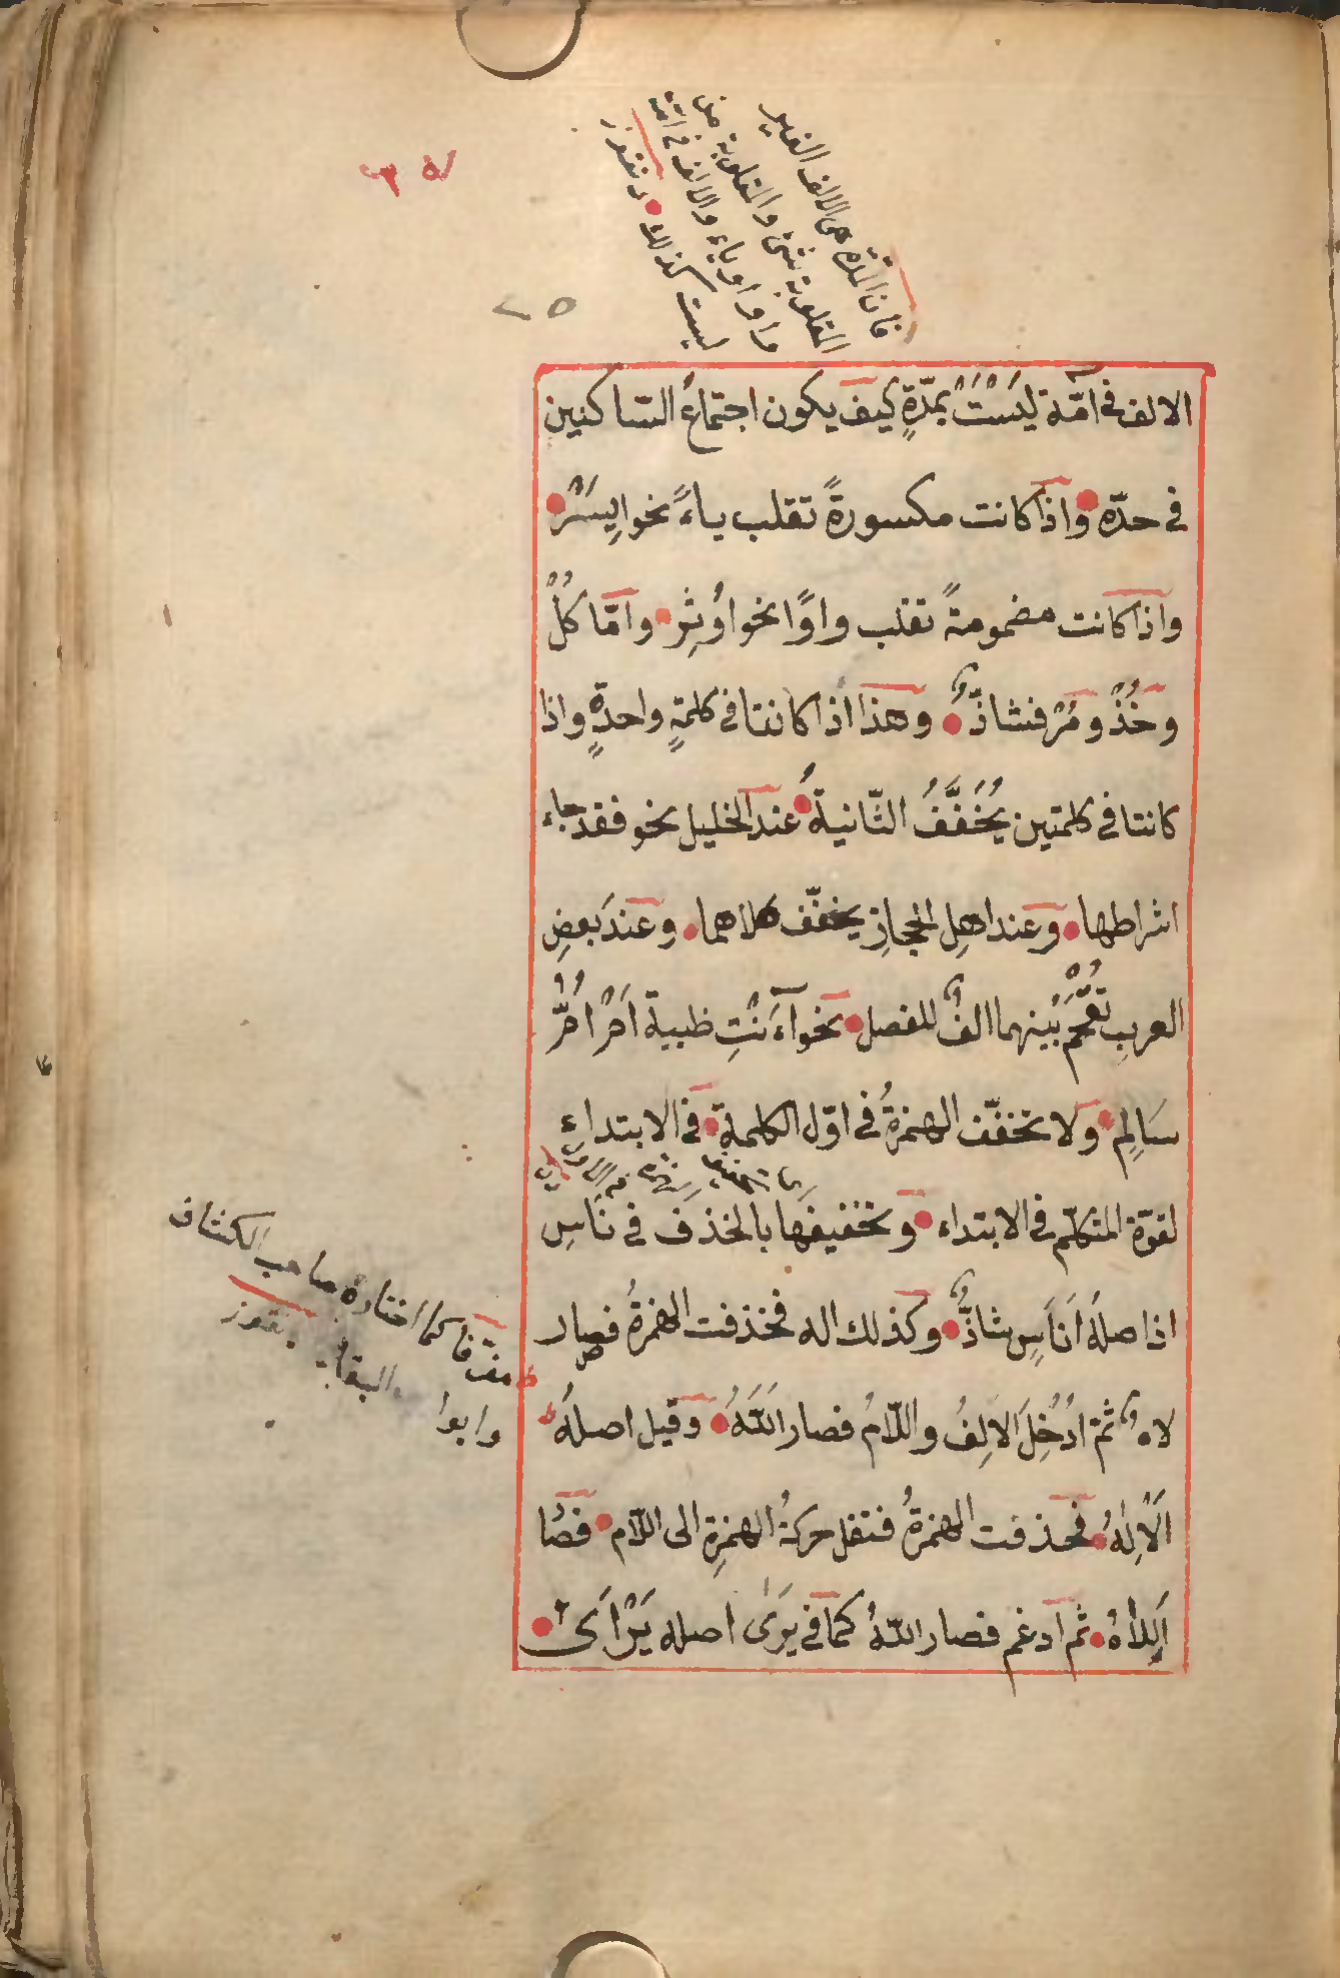 فان المدة هى الالف الغير
المقلوبة بشئ والمقلوبة من
واو او ياء والالف فى ائمة
ليست كذلك
٢٥
الالف فى آمّة ليْسَتْ بمدّةٍ كيفَ يكون اجتماعُ السّاكنين
فى حدّه واذا كانت مكسورةً تقلب ياءً نحو ايسَرْ
واذا كانت مضمومةً تقلب واوًا نحو اُوثِر وامّا كُلْ
وخُذْ ومُرْ فشاذٌّ وهذا اذا كانتا فى كلمةٍ واحدةٍ واذا
كانتا فى كلمتين يُخَفَّفُ الثّانيةُ عند الخليل نحو فقد جاء
اشراطها وعند اهلِ الحجازِ يخفّف كلاهما وعندَ بعضِ
العربِ تُقْحَمُ بَيْنهما الفٌ للفصل نحو آءَنْتِ ظبية اَمْ اُمُّ
سَالِمٍ ولا تخفّف الهمزةُ فى اوّل الكلمة فى الابتداءِ
لقوّة المتكلّم فى الابتداء وتخفيفها بالحذف فى نَاسٍ
اذ اصله اَناَسٍ شاذٌّ وكذلك اله فحذفت الهمزةُ فصار
لاهٌ ثمّ اُدْخِلَ الالِفُ واللّامُ فصار اَللّٰهُ وقيل اصلهُ
اَلْاِلٰهُ فحذفت الهمزةُ فنقل حركةُ الهمزةِ الى اللّام فصا
اَلِلاٰهُ ثم ادغم فصار اللّهُ كما فى يَرَى اصله يَرْاَىُ
كما اختاره صاحب الكشاف
وابوا البقاء